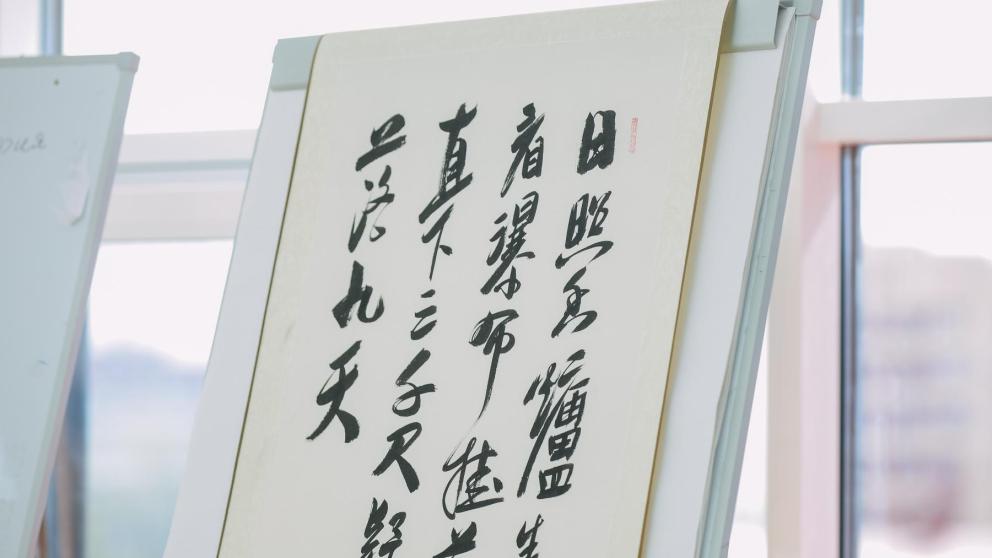 日照香爐生
看瀑布挂
直下三千尺疑
落九天